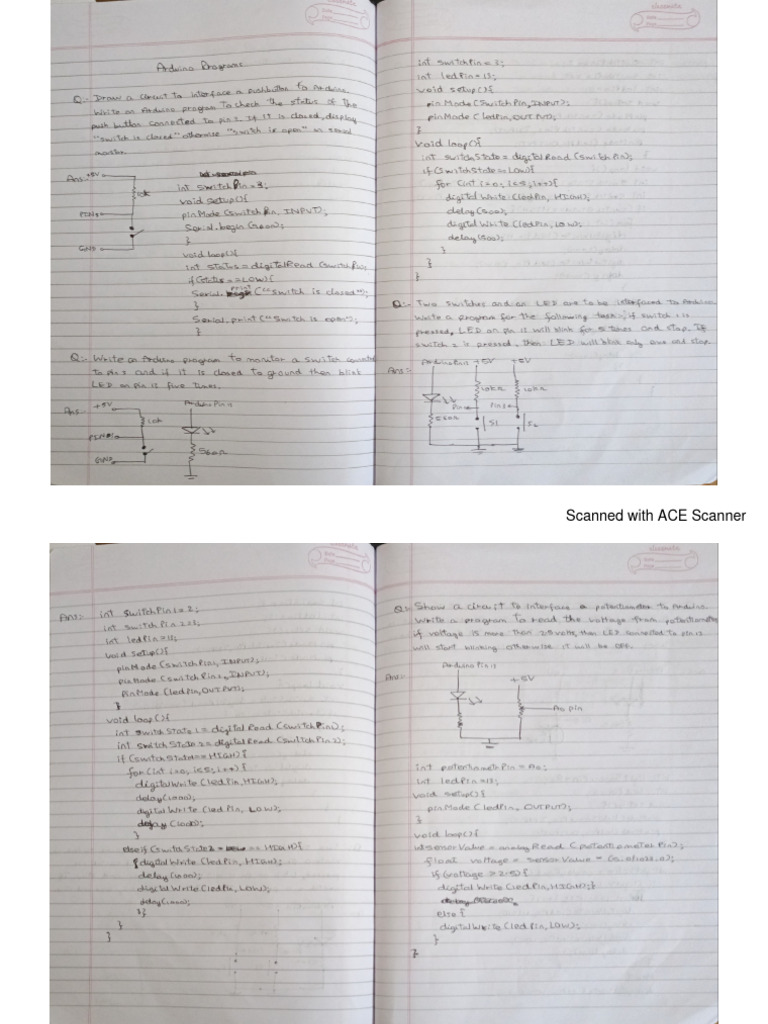 classmate
Arduino Programs
Q:- Draw a circuit to interface a pushbutton to Arduino.
Write an Arduino program to check the status of the
push button connected to pin 2. If it is closed, display
"switch is closed" otherwise "switch is open" on serial
monitor.
Ans:-
+5V
10k
GND
int switch Pin = 3;
void setup(){
pinMode (switch Pin, INPUT);
Serial.begin (9600);
}
void loop(){
int status = digitalRead (switch Pin);
if(status == LOW){
Serial. print ("switch is closed");
}
Serial.print ("Switch is open");
}
Q:- Write an Arduino program to monitor a switch connected
to pin 2 and if it is closed to ground then blink
LED on pin 12 five times.
Ans:-
+5V
10k
GND
Arduino Pin 11
560Ω
classmate
int switch Pin = 3;
int ledPin = 13;
void setup(){
pin Mode (Switch Pin, INPUT);
pinMode (led Pin, OUTPUT);
}
void loop(){
int switchState = digital Read (switch Pin);
if (switchState == LOW){
for (int i=0; i<5; i++){
digital Write (led Pin, HIGH);
delay (500);
digital Write (led Pin, LOW);
delay (500);
}
}
}
Q:- Two switches and an LED are to be interfaced to Arduino.
Write a program for the following task; if switch 1 is
pressed, LED on pin 12 will blink for 5 times and stop. If
switch 2 is pressed, then LED will blink only one and stop.
Ans:-
Arduino Pin 11
+5V
+5V
10kΩ
10kΩ
560Ω
S1
S2
Scanned with ACE Scanner
classmate
Ans:-
int switch Pin 1 = 2;
int switch Pin 2 = 3;
int ledPin = 12;
void setup(){
pin Mode (switch Pin 1, INPUT);
pin Mode (switch Pin 2, INPUT);
Pin Mode (led Pin, OUTPUT);
}
void loop(){
int switch State 1 = digital Read (switch Pin 1);
int switch State 2 = digital Read (switch Pin 2);
if (switch State 1 == HIGH){
for (int i=0; i<5; i++){
digital Write (led Pin, HIGH);
delay (1000);
digital Write (led Pin, LOW);
delay (1000);
}
else if (switch State 2 == HIGH){
digital Write (led Pin, HIGH);
delay (1000);
digital Write (led Pin, LOW);
delay (1000);
}}
}
}
classmate
Q:- Show a circuit to interface a potentiometer to Arduino.
Write a program to read the voltage from potentiometer
if voltage is more than 2.5 volts, then LED connected to pin 12
will start blinking otherwise it will be OFF.
Arduino Pin 13
Ans:-
+5V
A0 pin
int potentiometer Pin = A0;
int led Pin = 13;
void setup(){
pin Mode (led Pin, OUTPUT);
}
void loop(){
int sensor Value = analog Read (potentiometer Pin);
float voltage = sensor Value *
if (voltage > 2.5){
digital Write (led Pin, HIGH);}
else {
digital Write (led Pin, LOW);
}
}